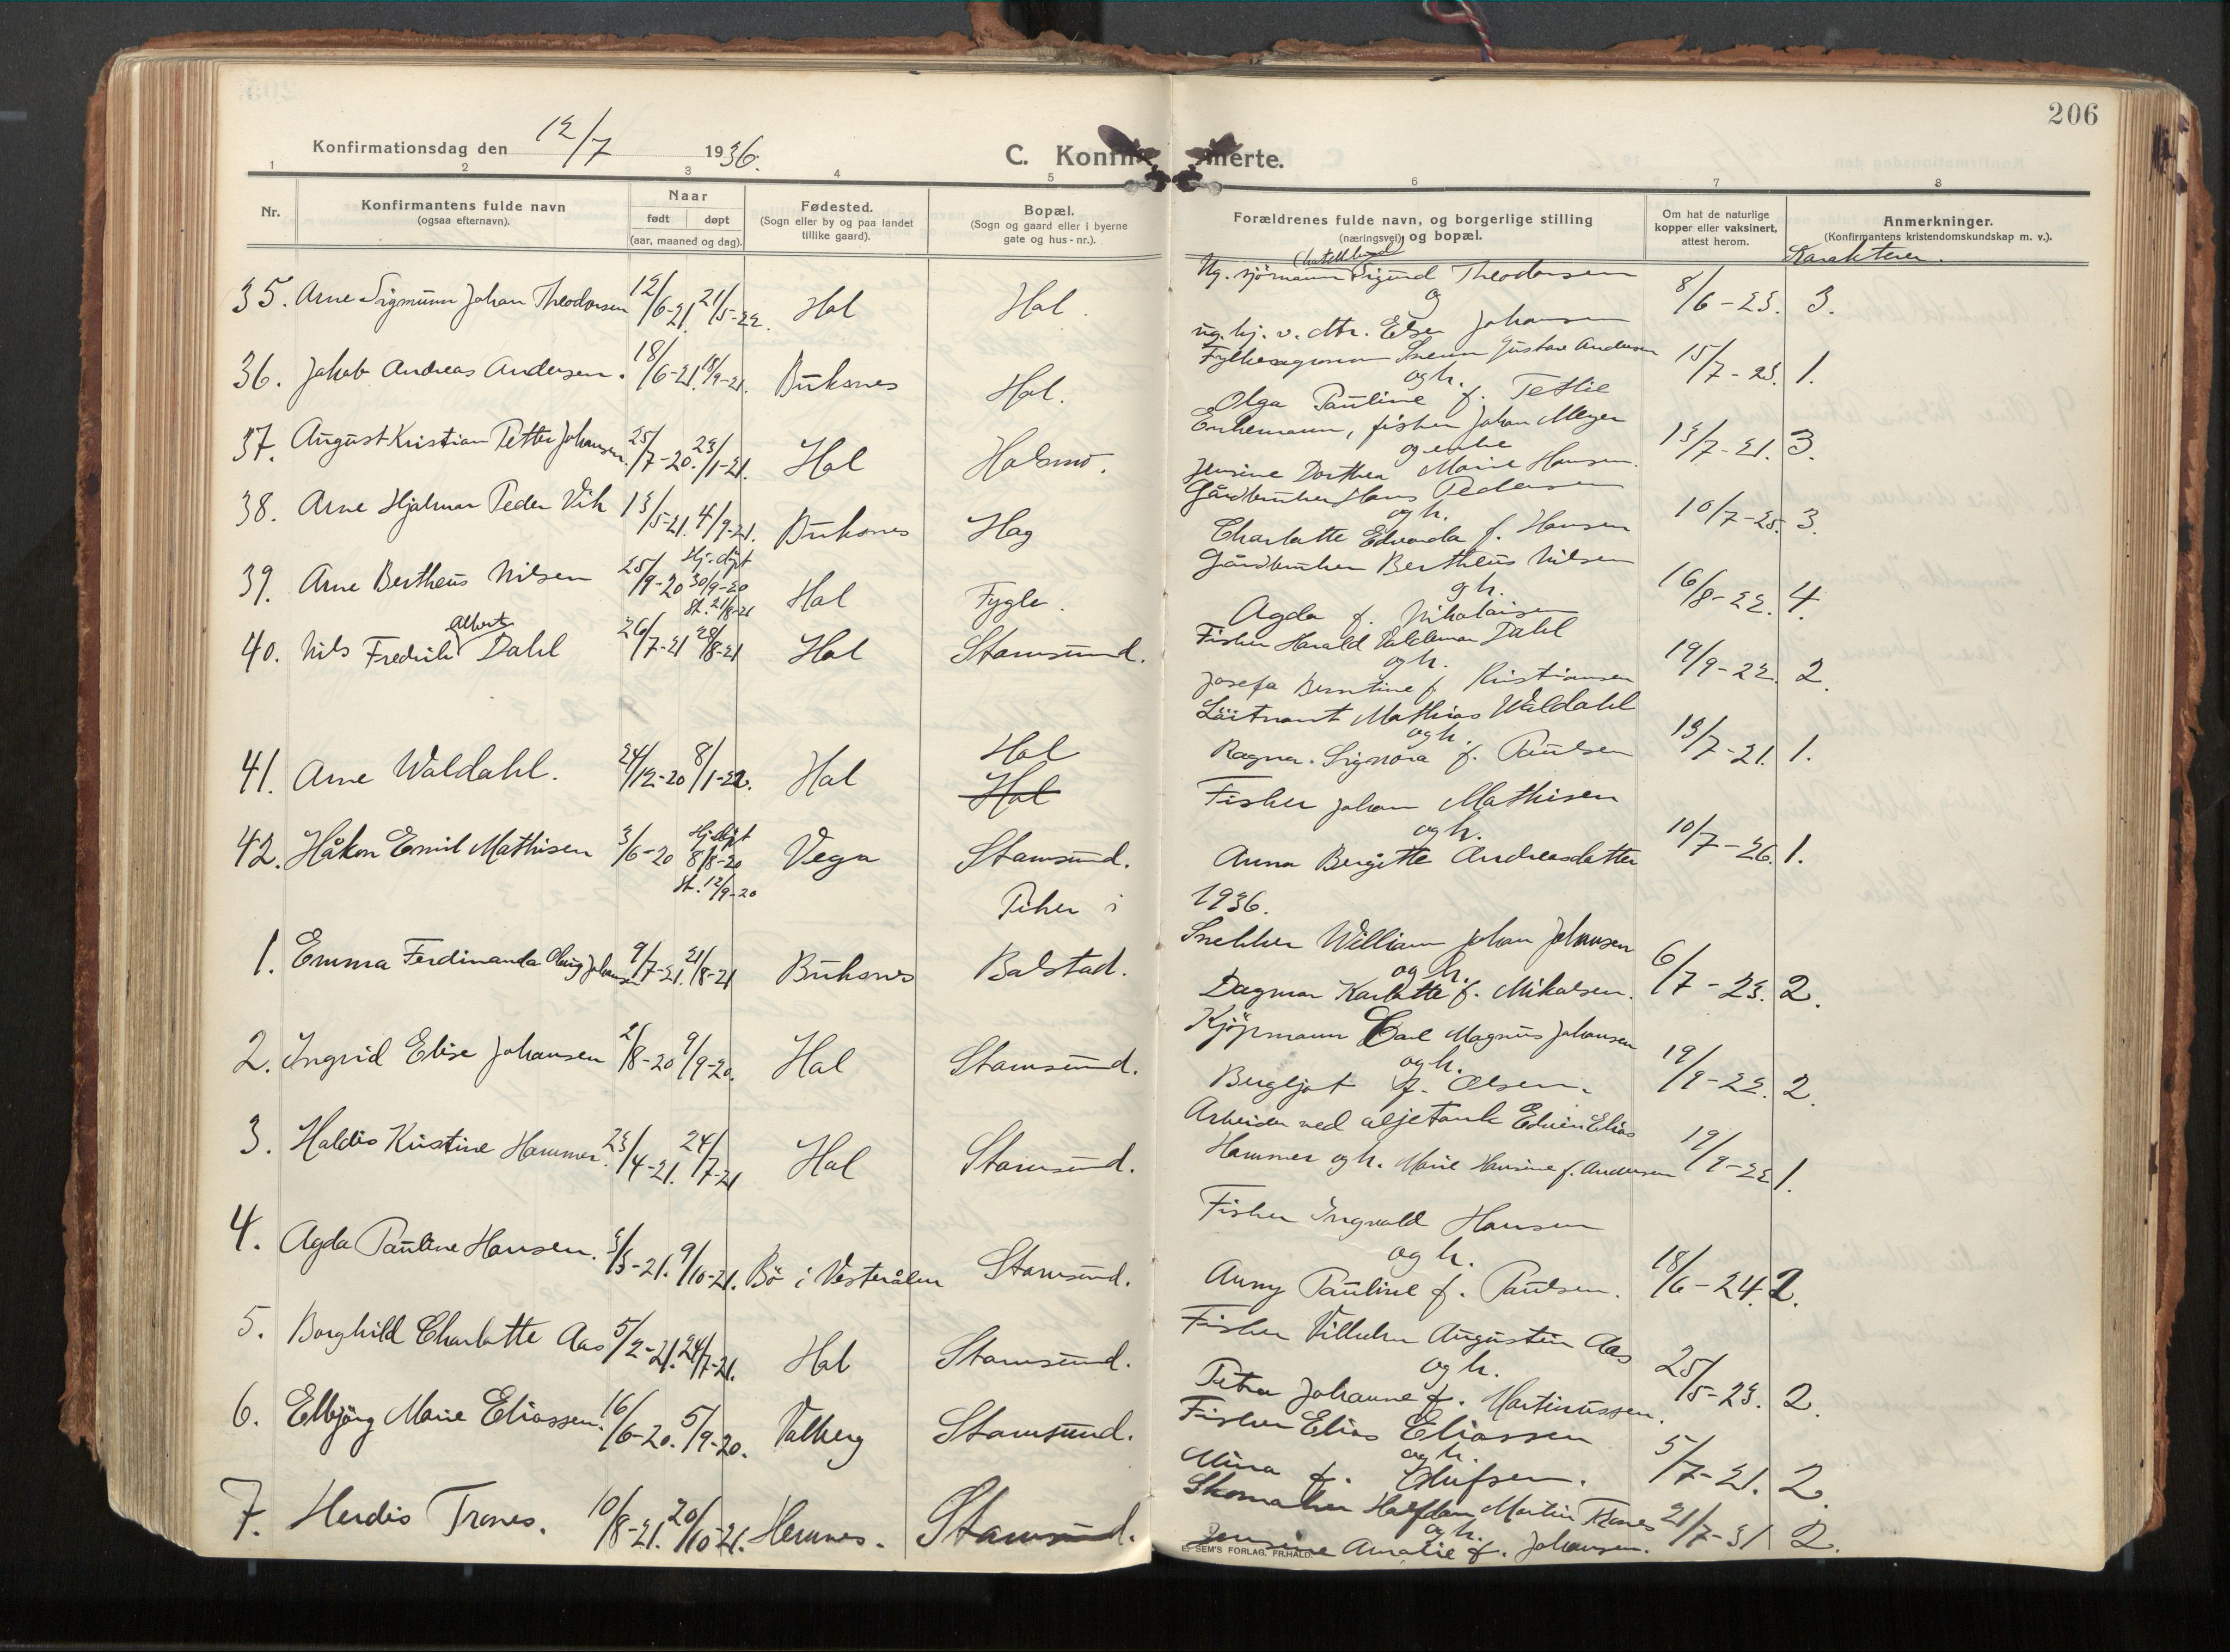 206
Konfirmationsdag den 12/7 1936.
C. Konfirmerte.
1 2 3 4 5 6 7 8
Nr.
Konfirmantens fulde navn
(ogsaa efternavn).
Naar
født døpt
(aar, maaned og dag).
Fødested.
(Sogn eller by og paa landet
tillike gaard).
Bopæl.
(Sogn og gaard eller i byerne
gate og hus-nr.).
Forældrenes fulde navn, og borgerlige stilling
(næringsvei) og bopæl.
Om hat de naturlige
kopper eller vaksinert,
attest herom.
Anmerkninger.
(Konfirmantens kristendomskundskap m. v.).
Karakterer.
35. Arne Sigmunn Johan Theodorsen 12/6-21. 21/5-22. Hol Hol.
Ug. sjömann Sigurd Theodorsen
og
ug. hj. v. dtr. Elsa Johansen
8/6-23. 3.
36. Jakob Andreas Andersen. 18/6-21. 18/9-21. Buksnes Hol.
Fylkesagronom Svenn Gustav Andersen
og h.
Olga Pauline f. Tetlie
15/7-23. 1.
37. August Kristian Petter Johansen. 25/7-20. 23/1-21. Hol Holsmo.
Enkemann, fisker Johan Meyer
og enke
Jensine Dorthea Marie Hansen.
13/7-21. 3.
38. Arne Hjalmar Peder Vik 13/5-21. 4/9-21. Buksnes Hag
Gårdbruker Hans Pedersen
og h.
Charlotte Edvarda f. Hansen
10/7-25. 3.
39. Arne Bertheus Nilsen 25/9-20 Hj. døpt
30/9-20
St. 21/8-21
Hol Fygle.
Gårdbruker Bertheus Nilsen
og h.
Agda f. Nikolaisen
16/8-22. 4.
40. Nils Fredrik Albert Dahl 26/7-21 28/8-21 Hol Stamsund.
Fisker Harald Valdemar Dahl
og h.
Josefa Berntine f. Kristiansen
19/9-22. 2.
41. Arne Waldahl. 24/12-20 8/1-22. Hol Hol
Hol
Löitnant Mathias Waldahl
og h.
Ragna Signora f. Paulsen
13/7-21. 1.
42. Håkon Emil Mathisen 3/6-20 Hj. døpt
8/8-20
St. 12/9-20
Vega Stamsund.
Fisker Johan Mathisen
og h.
Anna Bergitte Andreasdatter
10/7-26. 1.
Piker i 1936.
1. Emma Ferdinanda Johansen 9/7-21. 21/8-21 Buksnes Balstad.
Snekker William Johan Johansen
og h.
Dagmar Karlotte f. Mikalsen.
6/7-23. 2.
2. Ingrid Elise Johansen 2/8-20 9/9-20. Hol Stamsund.
Kjöpmann Carl Magnus Johansen
og h.
Bergljot f. Olsen.
19/9-22. 2.
3. Haldis Kristine Hammer. 23/4-21. 24/7-21 Hol Stamsund.
Arbeider ved oljetank Edvin Elias
Hammer og h. Marie Hansine f. Andersen
19/9-22 1.
4. Agda Pauline Hansen. 3/3-21. 9/10-21. Bö i Vesterålen Stamsund.
Fisker Ingvald Hansen
og h.
Anny Pauline f. Paulsen.
18/6-24. 2.
5. Borghild Charlotte Aas 5/2-21. 24/7-21. Hol Stamsund.
Fisker Vilhelm Augustin Aas
og h.
Petra Johanne f. Martinussen.
25/5-23. 2.
6. Elbjörg Marie Eliassen. 16/6-20. 5/9-20. Valberg Stamsund.
Fisker Elias Eliassen
og h.
Mina f. Olufsen.
5/7-21. 2.
7. Herdis Trones. 10/8-21. 20/10-21. Hemnes. Stamsund.
Skomaker Halfdan Martin Trones
og h.
Jensine Amalie f. Johansen.
21/7-31 2.
E. SEM'S FORLAG. FR.HALD.